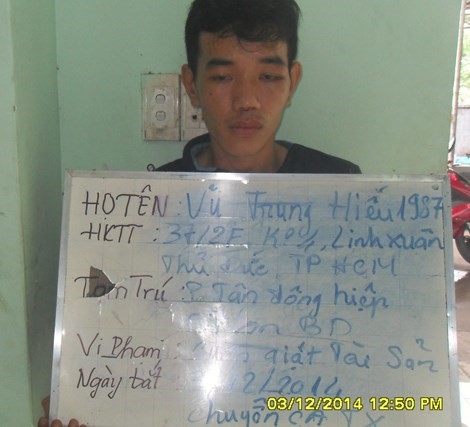 HỌ TÊN : Vũ Trung Hiếu 1987
HKTT : 37/2F KP4, Linh xuân
Thủ Đức, TP HCM
Tạm Trú : P. Tân đông hiệp
BD
Vi Phạm giật Tài Sản
Ngày bắt 12/2014
chuyển CA TX
03/12/2014 12:50 PM